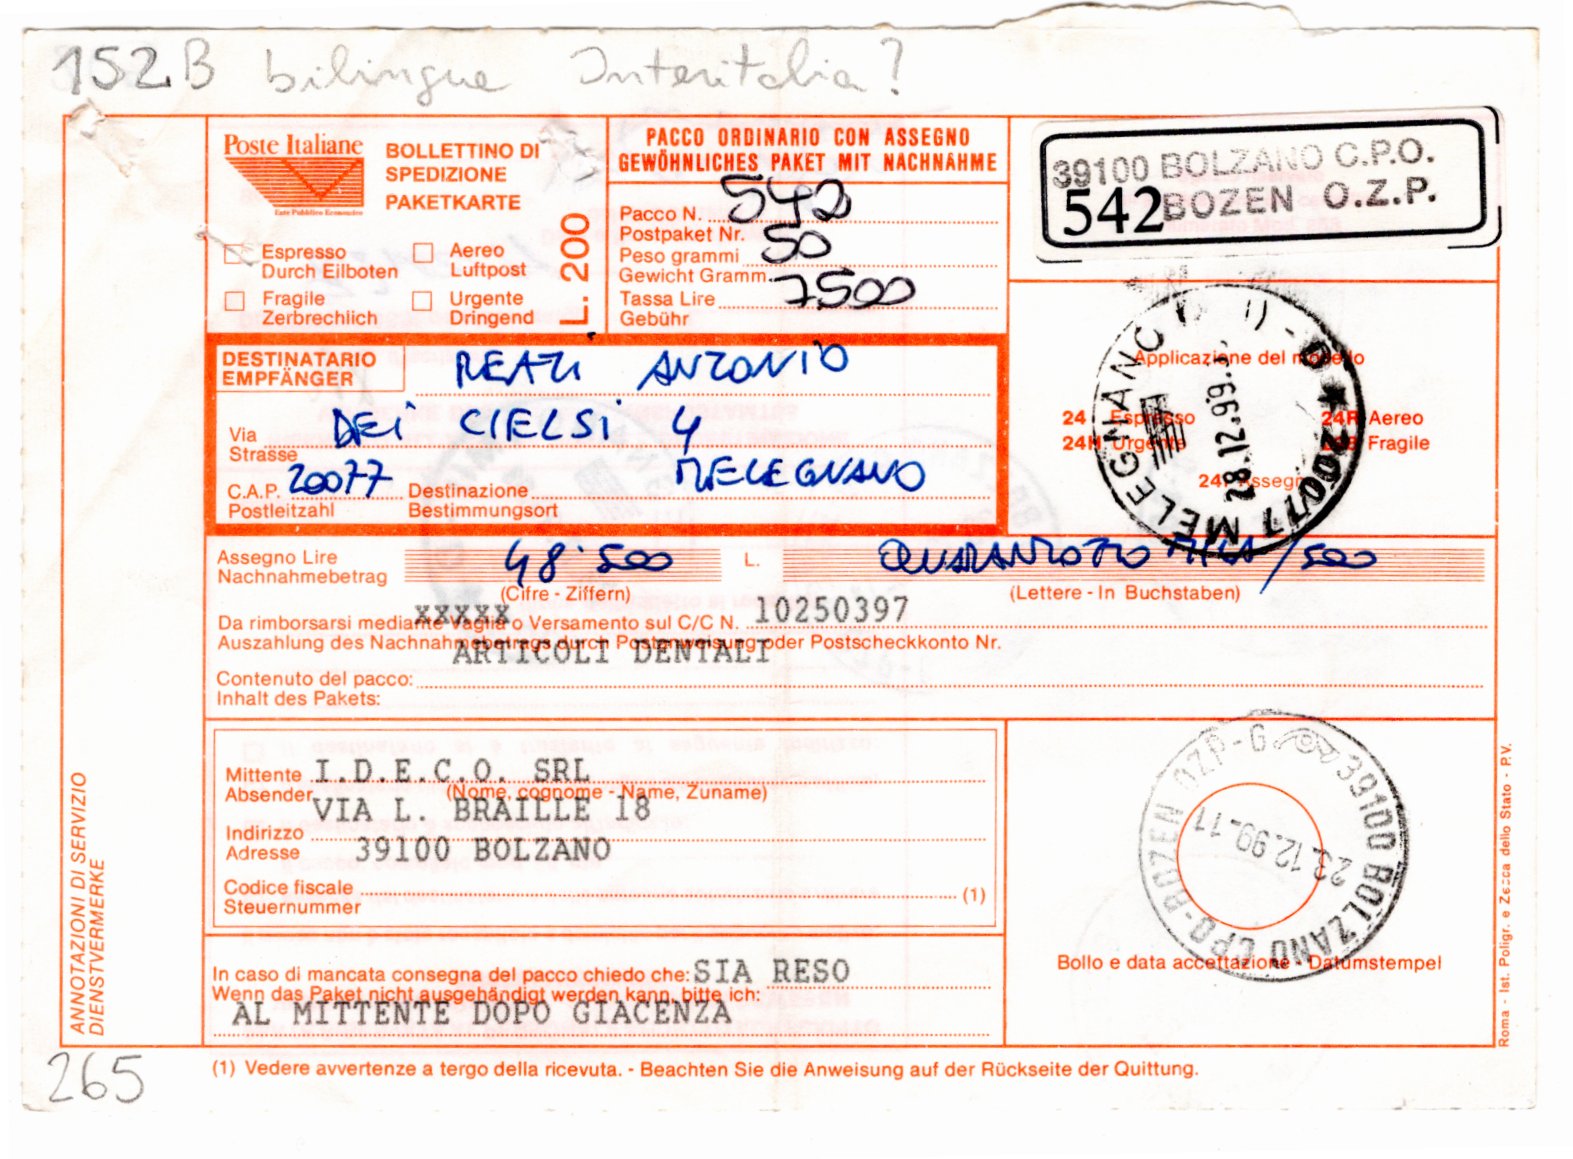 152B bilingue Interitalia?
Poste Italiane
Ente Pubblico Economico
BOLLETTINO DI
SPEDIZIONE
PAKETKARTE
Espresso
Durch Eilboten
Aereo
Luftpost
Fragile
Zerbrechlich
Urgente
Dringend
L. 200
PACCO ORDINARIO CON ASSEGNO
GEWÖHNLICHES PAKET MIT NACHNAHME
Pacco N. 542
Postpaket Nr.
Peso grammi 50
Gewicht Gramm.
Tassa Lire 7500
Gebühr
39100 BOLZANO C.P.O.
542 BOZEN O.Z.P.
DESTINATARIO
EMPFÄNGER
REATI ANTONIO
Via DEI CIELSI 4
Strasse
C.A.P. 20077 Destinazione MELEGNANO
Postleitzahl Bestimmungsort
Applicazione del modello
24 Espresso 24R Aereo
24H Urgente 24B Fragile
24 Assegno
20077 MELEGNANO
28.12.99
Assegno Lire 48.500 L. QUARANTOTTO MILA/500
Nachnahmebetrag
(Cifre - Ziffern) (Lettere - In Buchstaben)
xxxxx
Da rimborsarsi mediante Vaglia o Versamento sul C/C N. 10250397
Auszahlung des Nachnahmebetrags durch Postanweisung oder Postscheckkonto Nr.
ARTICOLI DENTALI
Contenuto del pacco:
Inhalt des Pakets:
Mittente I.D.E.C.O. SRL
Absender (Nome, cognome - Name, Zuname)
VIA L. BRAILLE 18
Indirizzo
Adresse 39100 BOLZANO
Codice fiscale (1)
Steuernummer
39100 BOLZANO CPO-BOZEN OZP-G
23.12.99-11
Bollo e data accettazione - Datumstempel
In caso di mancata consegna del pacco chiedo che: SIA RESO
Wenn das Paket nicht ausgehändigt werden kann, bitte ich:
AL MITTENTE DOPO GIACENZA
ANNOTAZIONI DI SERVIZIO
DIENSTVERMERKE
Roma - Ist. Poligr. e Zecca dello Stato - P.V.
265
(1) Vedere avvertenze a tergo della ricevuta. - Beachten Sie die Anweisung auf der Rückseite der Quittung.